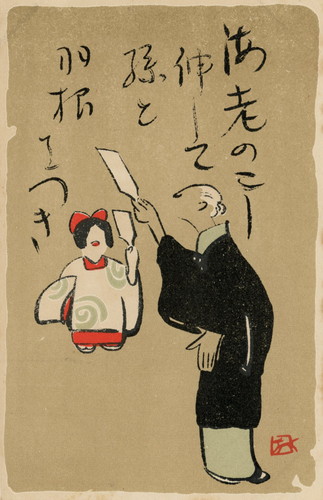 海老のこし
伸して
孫と
羽根をつき